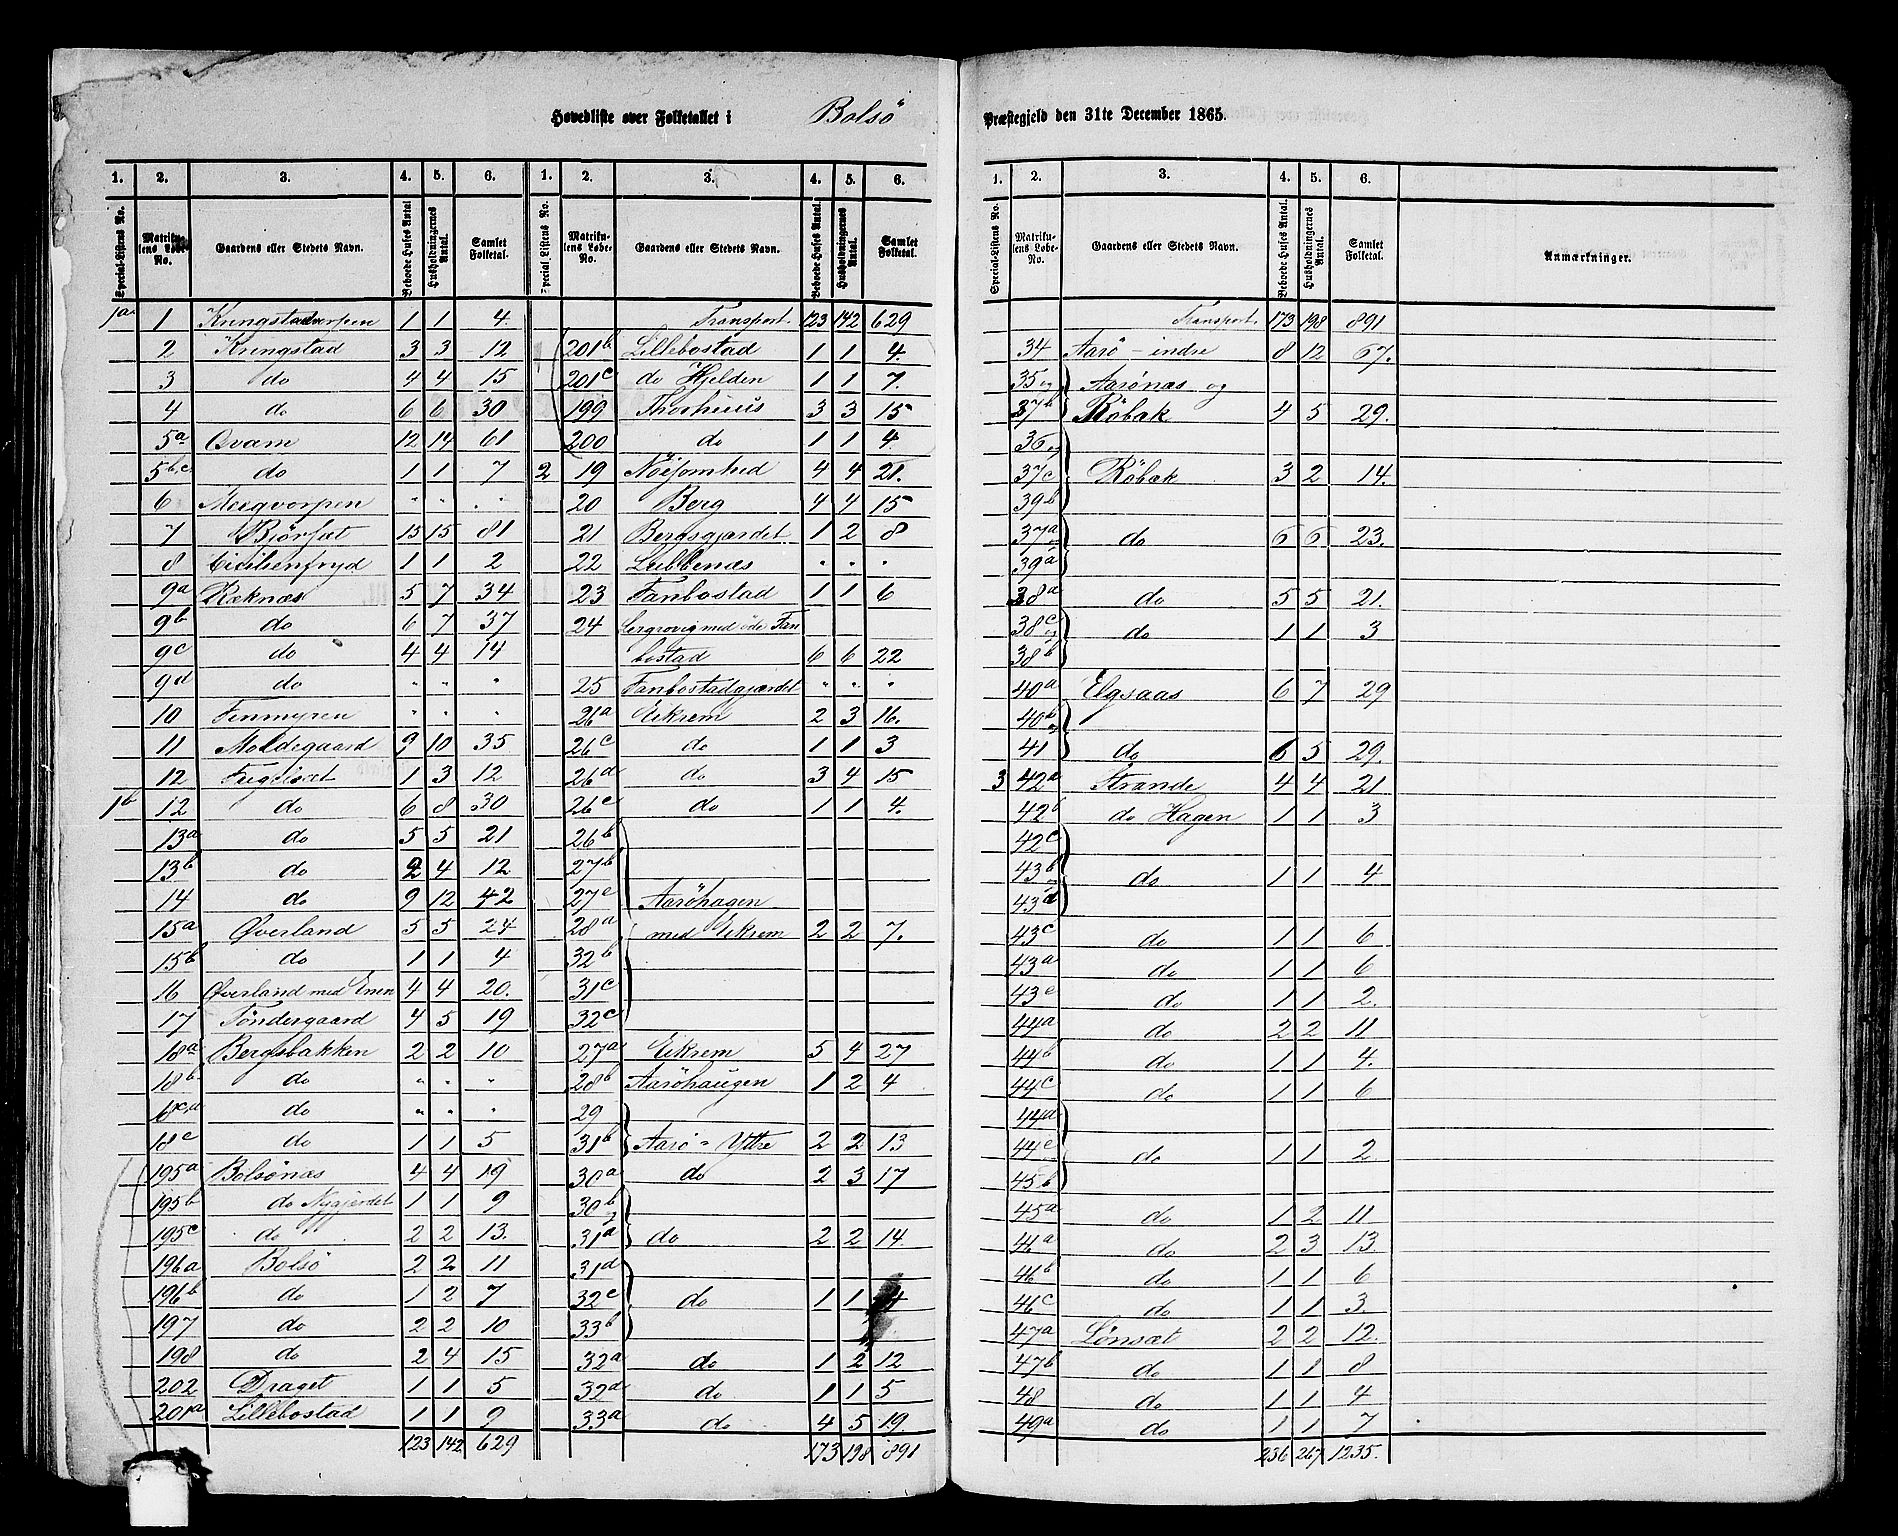 Hovedliste over Folketallet i Bolsö Præstegjeld den 31te December 1865.
1. 2. 3. 4. 5. 6.
Special-Listens No. Matrikulens Løbe-No. Gaardens eller Stedets Navn. Beboede Huses Antal Husholdningernes Antal. Samlet Folketal.
1a 1 Kringstadvorpen 1 1 4.
2 Kringstad 3 3 12
3 do 4 4 15
4 do 6 6 30
5a Qvam 12 14 61
5b,c do 1 1 7
6 Moegvorpen " " "
7 Bjørsæt 15 15 81
8 Cicilienfryd 1 1 2
9a Ræknæs 5 7 34
9b do 6 7 37
9c do 4 4 14
9d do " " "
10 Fenmyren " " "
11 Moldegaard 9 10 35
12 Fugelsæt 1 3 12
1b 12 do 6 8 30
13a do 5 5 21
13b do 2 4 12
14 do 9 12 42
15a Øverland 5 5 24
15b do 1 1 4
16 Øverland med Enen 4 4 20.
17 Töndergaard 4 5 19
18a Bergsbakken 2 2 10
18b do " " "
18c,d do " " "
18e do 1 1 5
195a Bolsönæs 4 4 19
195b do Nygjerdet 1 1 9
195c do 2 2 13.
196a Bolsö 2 2 11
196b do 1 2 7
197 do 2 2 10
198 do 2 4 15
202 Draget 1 1 5
201a Lillebostad 1 1 9
123 142 629
1. 2. 3. 4. 5. 6.
Special-Listens No. Matrikulens Løbe-No. Gaardens eller Stedets Navn. Beboede Huses Antal. Husholdningernes Antal. Samlet Folketal.
Transport. 123 142 629
201b Lillebostad 1 1 4.
201c do Hjelden 1 1 7.
199 Thorhuus 3 3 15
200 do 1 1 4
2 19 Nöisomhed 4 4 21.
20 Berg 4 4 15
21 Bergsgjærdet 1 2 8
22 Lubbenæs " " "
23 Fanbostad 1 1 6
24 Lergrovig med öde Fan
bostad 6 6 22
25 Fanbostadgjærdet " " "
26a Eikrem 2 3 16.
26c do 1 1 3
26d do 3 4 15
26e do 1 1 4.
26b
27b
27c Aaröhagen
28a med Eikrem 2 2 7.
32b
31c
32c
27a Eikrem 5 4 27
28b Aaröhaugen 1 2 4
29
31b Aarö = Yttre 2 2 13
30a do 2 3 17
30b og
31a do 2 2 14.
31d
32e do 1 1 4
33b
32a do 1 2 12
32d do 1 1 5
33a do 4 5 19.
173 198 891
1. 2. 3. 4. 5. 6.
Special-Listens No. Matrikulens Løbe-No. Gaardens eller Stedets Navn. Beboede Huses Antal. Husholdningernes Antal. Samlet Folketal. Anmærkninger.
Transport. 173 198 891
34 Aarö - indre 8 12 67.
35 og Aarönæs og
37b Röbæk 4 5 29.
36 og
37c Röbæk 3 2 14.
39b
37a do 6 6 23.
39a
38a do 5 5 21.
38c og do 1 1 3
38b
40a Elgsaas 6 7 29
40b og
41 do 6 5 29.
3 42a Strande 4 4 21
42b do Hagen 1 1 3
42c
43b og do 1 1 4
43d
43c do 1 1 6
43a do 1 1 6
43e do 1 1 2.
44a do 2 2 11
44b do 1 1 4.
44c do 1 1 6
44d
44e do 1 1 2
45b
45a do 1 2 11
46a do 2 3 13.
46b do 1 1 6
46c do 1 1 3.
47a Lönsæt 2 2 12.
47b do 1 1 8
48 do 1 1 4
49a do 1 1 7
236 267 1235.